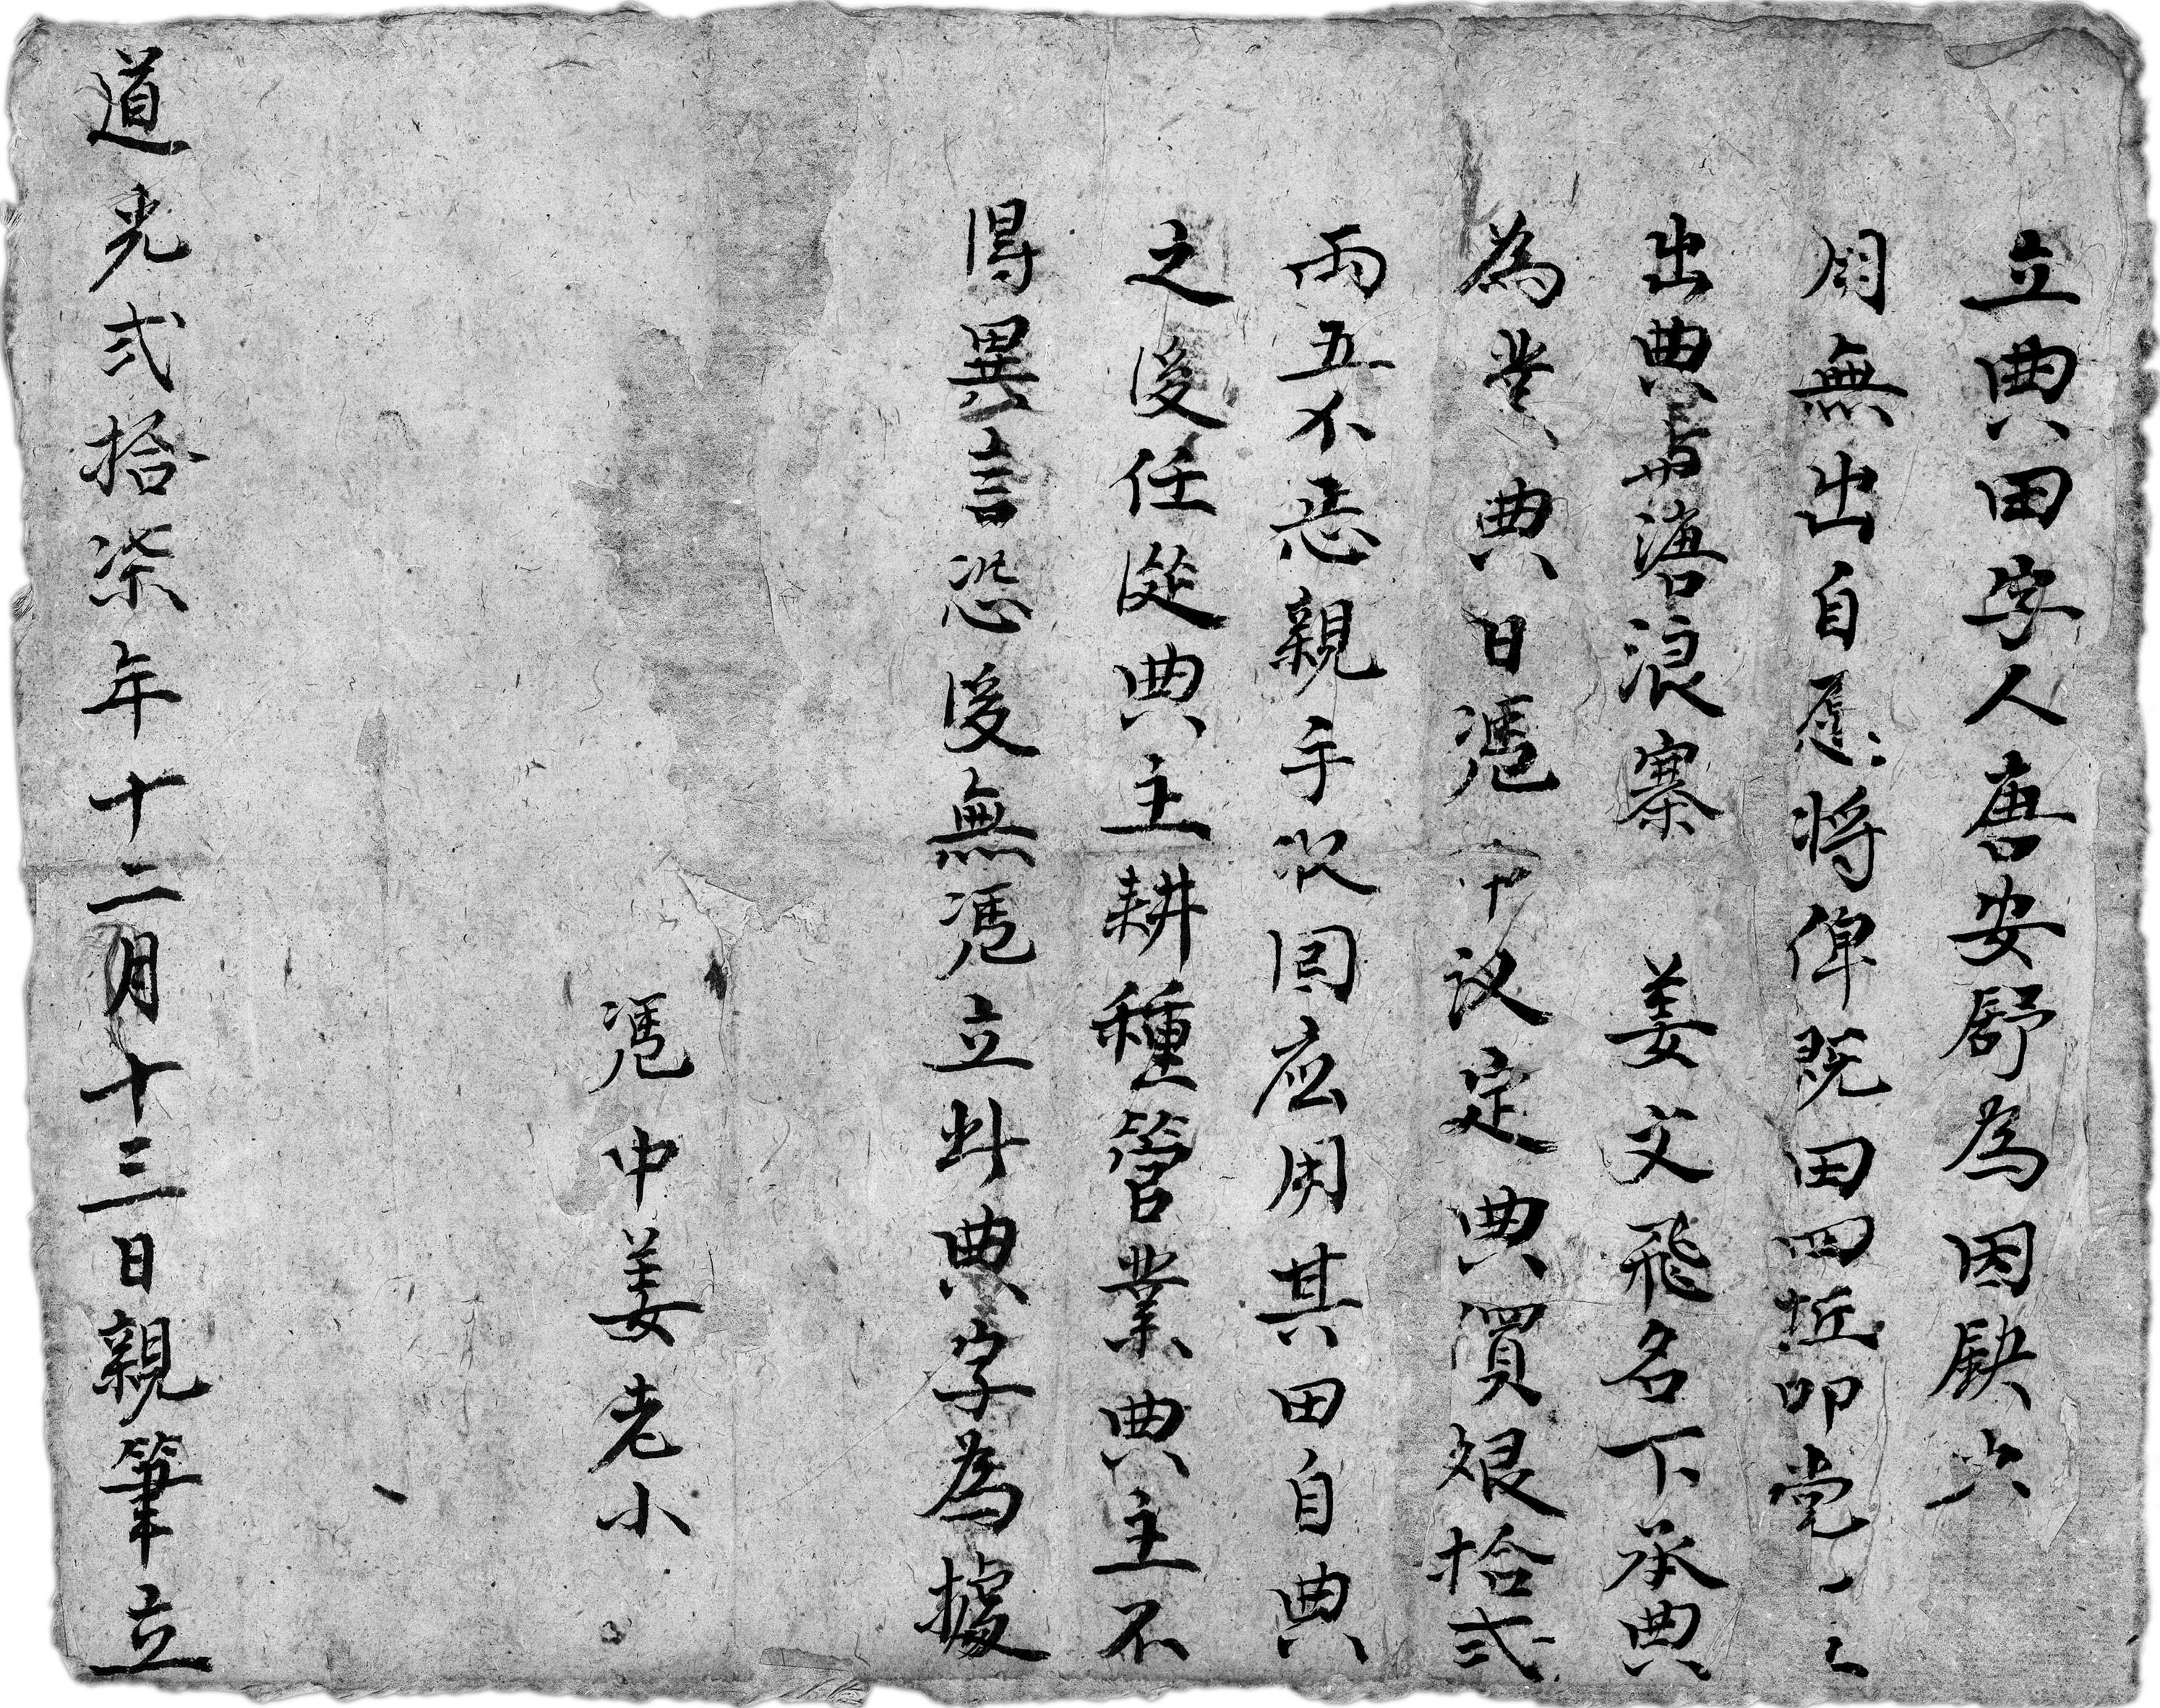 立典田字人唐安舒為因缺少
用無出自愿將俾既田四坵叩党
出典與落浪寨 姜文飛名下承典
為業典日憑中议定典價艮拾弍
兩五不恁親手收回应用其田自典
之後任從典主耕種管業典主不
得異言恐後無憑立此典字為據
憑中姜老小
道光弍拾柒年十二月十三日親筆立